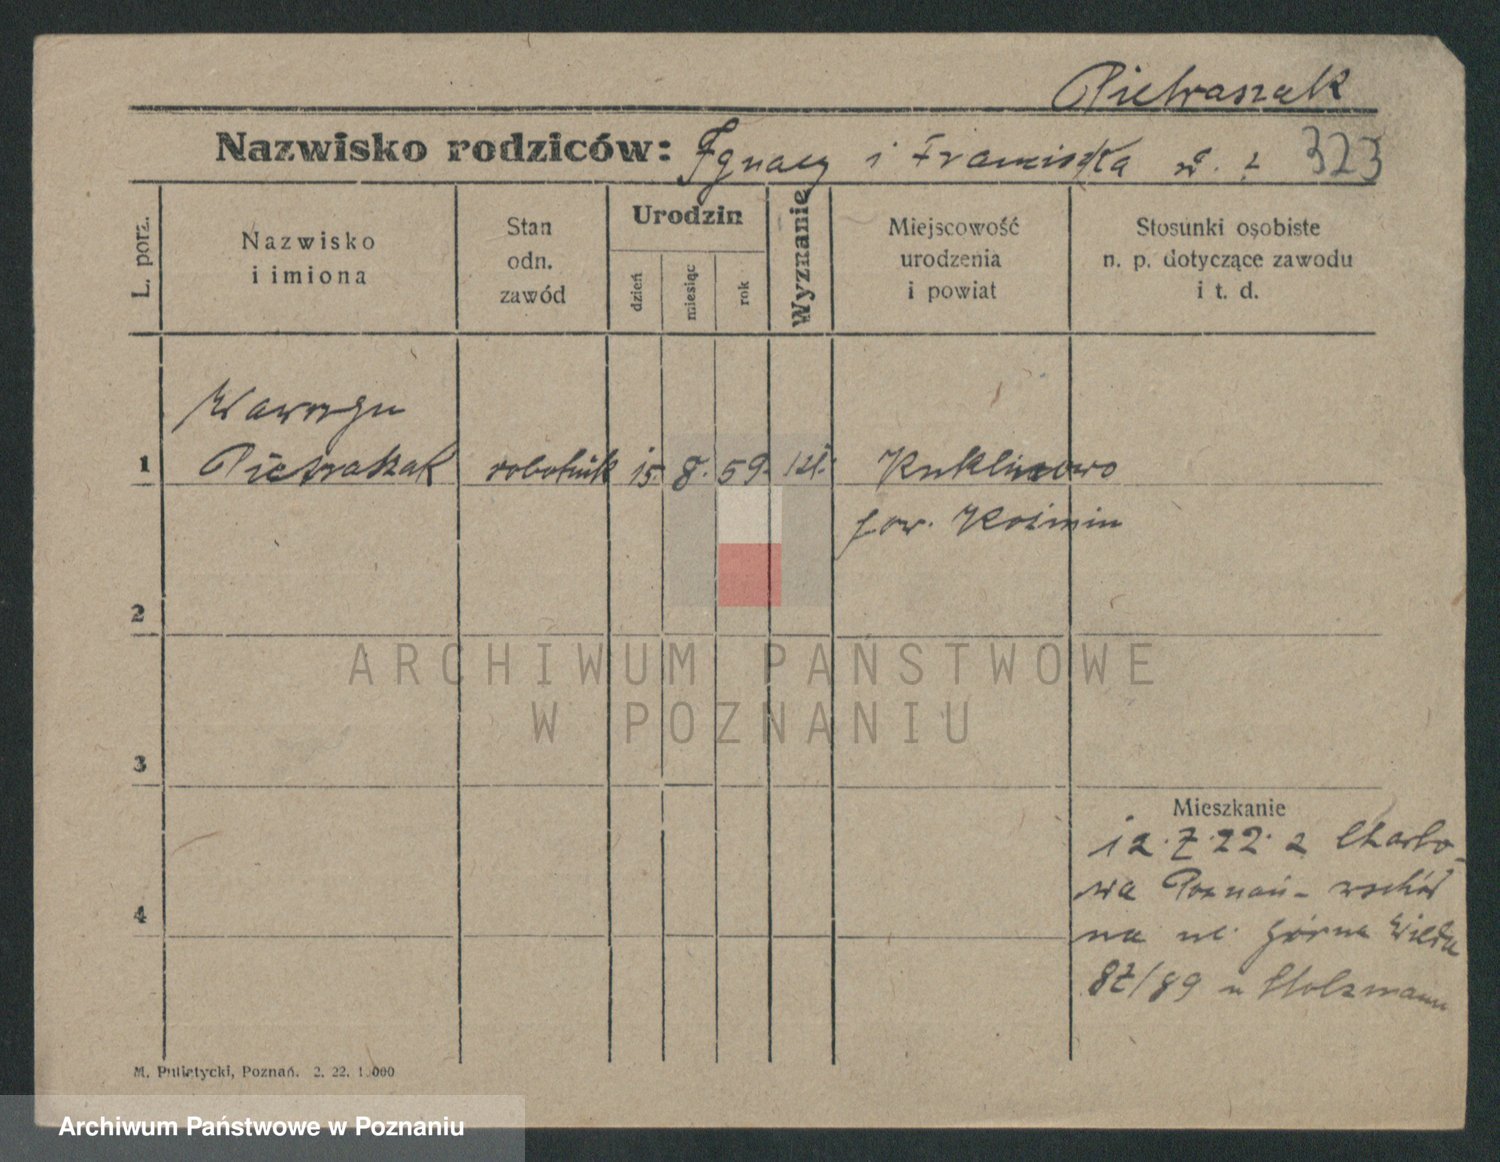 Pietraszak
Nazwisko rodziców: Ignacy i Franciszka
323
L. porz.
Nazwisko
i imiona
Stan
odn.
zawód
Urodzin
dzień
miesiąc
rok
Wyznanie
Miejscowość
urodzenia
i powiat
Stosunki osobiste
n. p. dotyczące zawodu
i t. d.
Wawrzyn
1 Pietraszak robotnik 15. 8. 59. Kuklinowo
pow. Koźmin
2
ARCHIWUM PAŃSTWOWE
W POZNANIU
3
Mieszkanie
12.7.22. z Charto-
wa Poznań-wschód
4
na ul. Górna Wilda
87/89 u Holzmann
M. Putiatycki, Poznań. 2. 22. 1.000
Archiwum Państwowe w Poznaniu